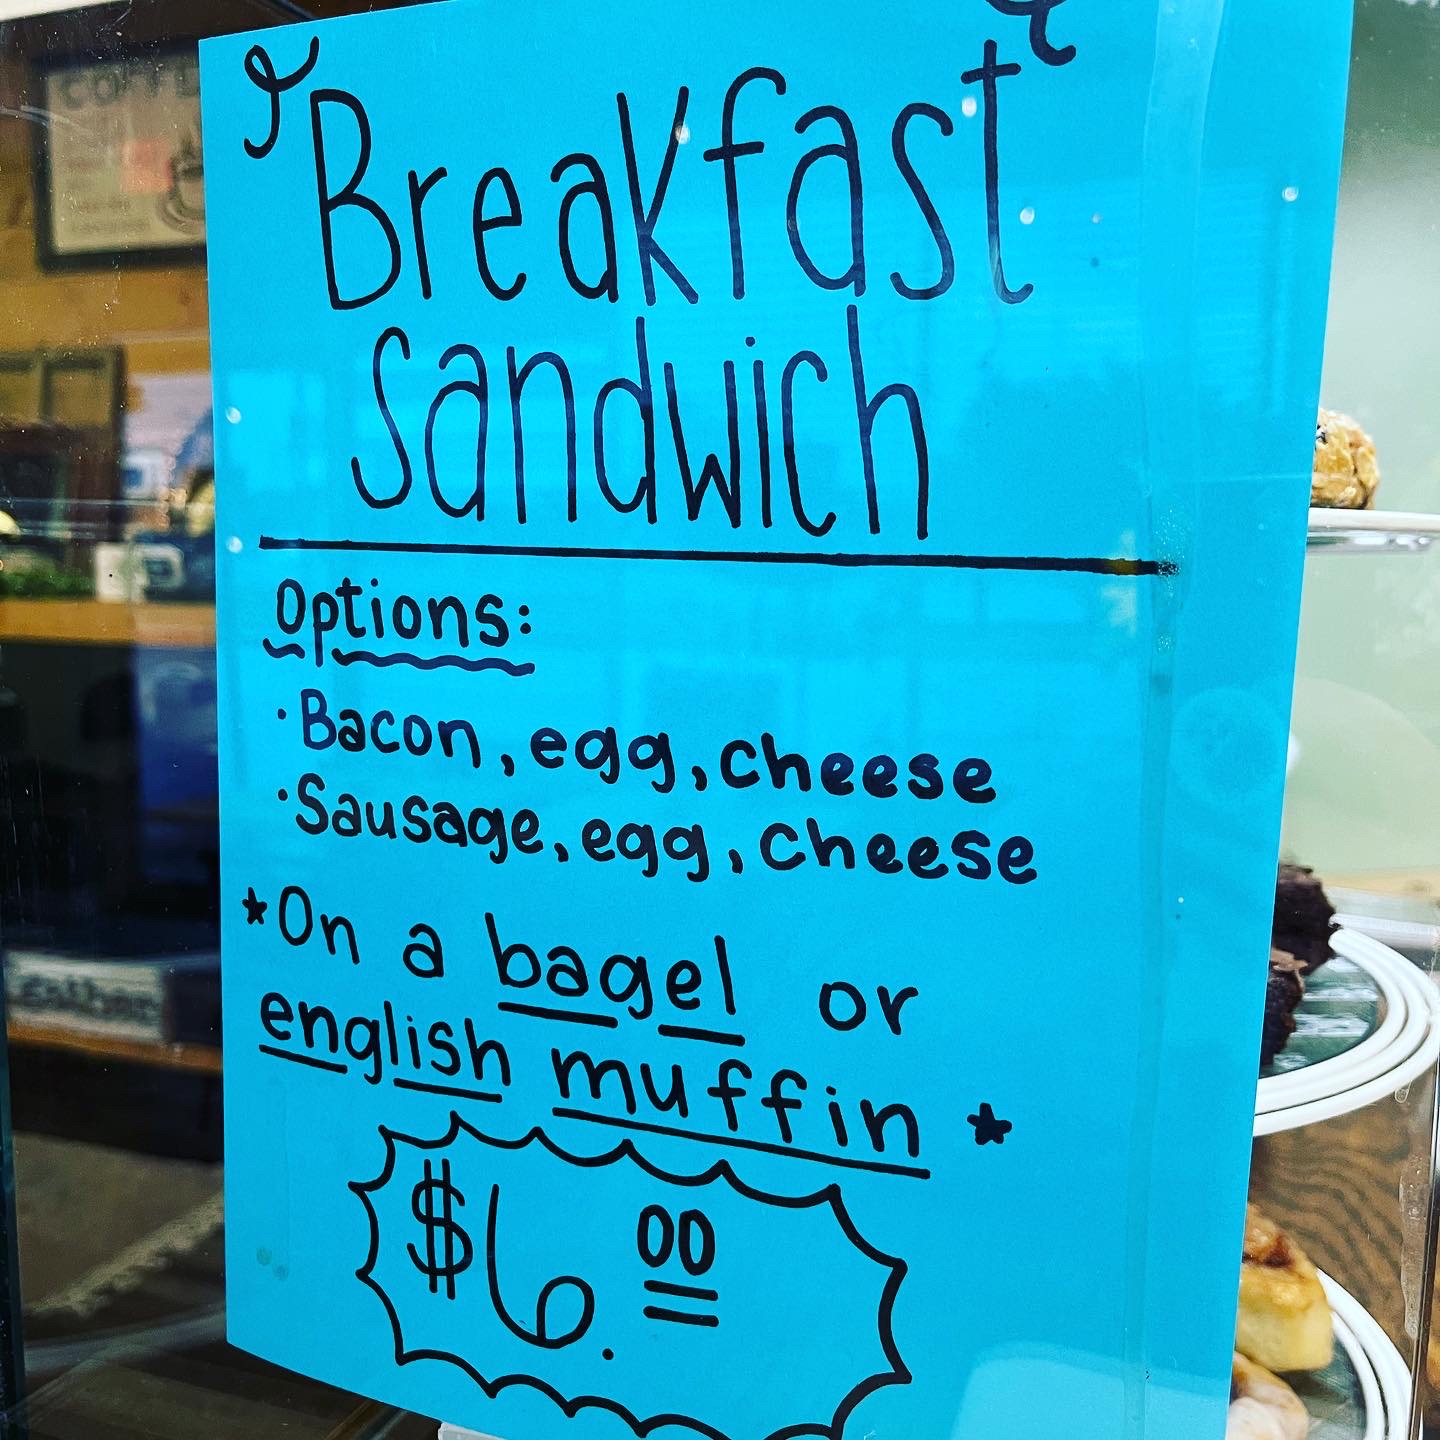 Breakfast
Sandwich
Options:
· Bacon, egg, cheese
· Sausage, egg, cheese
*On a bagel or
english muffin *
$6.00